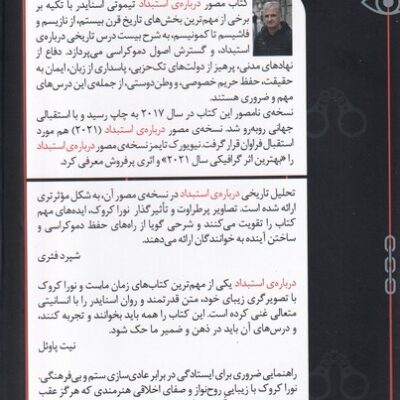 کتاب مصور درباره‌ی استبداد تیموتی اسنایدر با تکیه بر
برخی از مهم‌ترین بخش‌های تاریخ قرن بیستم، از نازیسم و
فاشیسم تا کمونیسم، به شرح بیست درس تاریخی درباره‌ی
استبداد، و گسترش اصول دموکراسی می‌پردازد. دفاع از
نهادهای مدنی، پرهیز از دولت‌های تک‌حزبی، پاسداری از زبان، ایمان به
حقیقت، حفظ حریم خصوصی، و وطن‌دوستی، از جمله‌ی این درس‌های
مهم و ضروری هستند.
نسخه‌ی نامصور این کتاب در سال ۲۰۱۷ به چاپ رسید و با استقبالی
جهانی روبه‌رو شد. نسخه‌ی مصور درباره‌ی استبداد (۲۰۲۱) هم مورد
استقبال فراوان قرار گرفت. نیویورک تایمز نسخه‌ی مصور درباره‌ی استبداد
را «بهترین اثر گرافیکی سال ۲۰۲۱» و اثری پرفروش معرفی کرد.
تحلیل تاریخی درباره‌ی استبداد در نسخه‌ی مصور آن، به شکل مؤثرتری
ارائه شده است. تصاویر پرطراوت و تأثیرگذار نورا کروک، ایده‌های مهم
کتاب را تقویت می‌کنند و شرحی گویا از راه‌های حفظ دموکراسی و
ساختن آینده به خوانندگان ارائه می‌دهند.
شیرد فئری
درباره‌ی استبداد یکی از مهم‌ترین کتاب‌های زمان ماست و نورا کروک
با تصویرگری زیبای خود، متن قدرتمند و روان اسنایدر را با انسانیتی
متعالی غنی کرده است. این کتاب را همه باید بخوانند و تجربه کنند،
و درس‌های آن باید در ذهن و ضمیر ما حک شود.
نیت پاوئل
راهنمایی ضروری برای ایستادگی در برابر عادی‌سازی ستم و بی‌فرهنگی.
نورا کروک با زیبایی روح‌نواز و صفای اخلاقی هنرمندی که هرگز عقب